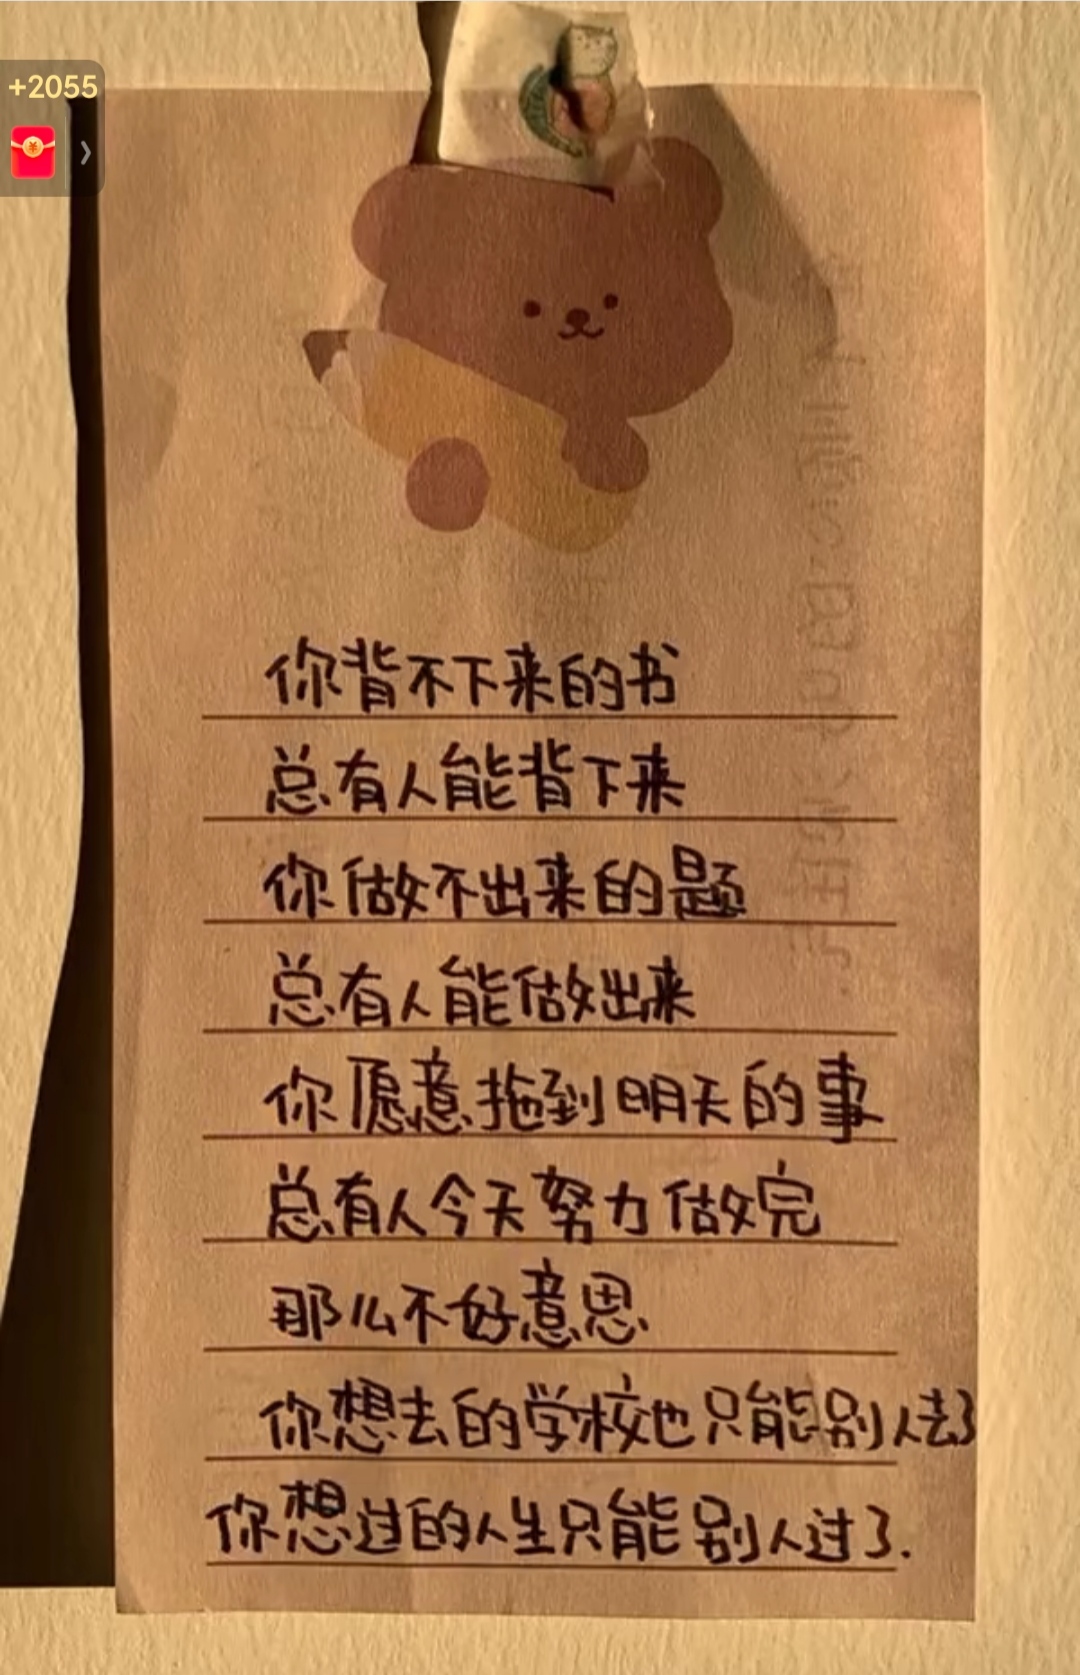 +2055
你背不下来的书
总有人能背下来
你做不出来的题
总有人能做出来
你愿意拖到明天的事
总有人今天努力做完
那么不好意思
你想去的学校也只能别人去了
你想过的人生只能别人过了.